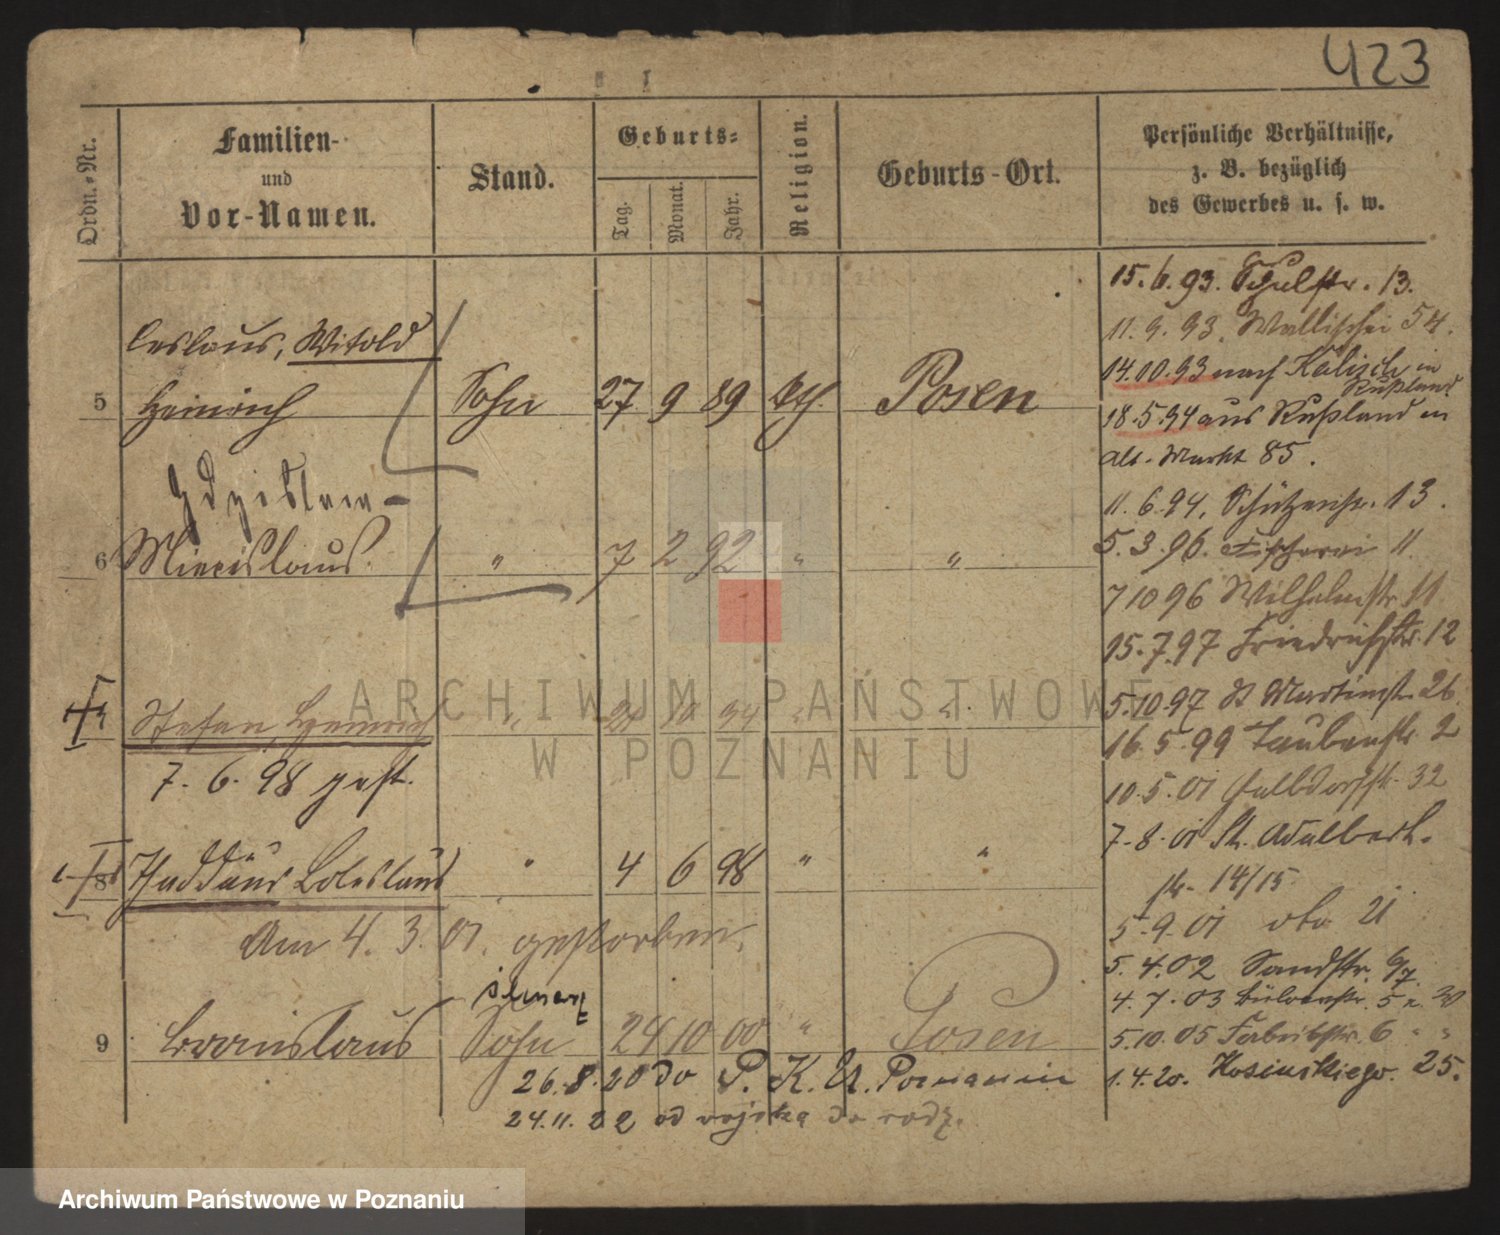 423
Ordn.-Nr.
Familien-
und
Vor-Namen.
Stand.
Geburts-
Tag.
Monat.
Jahr.
Religion.
Geburts-Ort.
Persönliche Verhältnisse,
z. B. bezüglich
des Gewerbes u. s. w.
Ceslaus, Witold
5 Heinrich Sohn 27 9 89 kth. Posen
Zdzislaw-
6 Miecislaus. " 7 2 92 " "
Stefan, Heinrich " 21 10 94 " "
7. 6. 98 gest.
8 Thaddäus Boleslaus " 4 6 98 " "
Am 4. 3. 01. gestorben.
9 Bronislaus Sohn 24 10 00 " Posen
26.8.20 do P. K. U. Poznannie
24.11.22 od wojska do rodz.
15.6.93. Schulstr. 13.
11.9.93. Wallischei 54.
14.10.93 nach Kalisch in
Rußland
18.5.94 aus Rußland in
Alt. Markt 85.
11.6.94. Schützenstr. 13.
5.3.96. Fischerei 11
7 10 96 Wilhelmstr. 11
15.7.97 Friedrichstr. 12
5.10.97 St Martinstr. 26.
16.5.99 Taubenstr. 2
10.5.01 Halbdorfstr. 32
7.8.01 St. Adalbert-
str. 14/15
5.9.01 dto 21
5.4.02 Sandstr.
4.7.03
5.10.05 Fabrikstr. 6 " "
1.4.20. Kosinskiego. 25.
ARCHIWUM PAŃSTWOWE
W POZNANIU
Archiwum Państwowe w Poznaniu